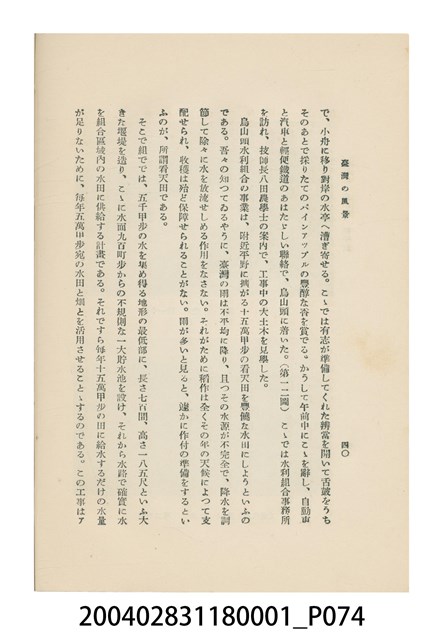 臺灣の風景
四〇
で、小舟に移り對岸の水亭へ漕ぎ寄せる。こゝでは有志が準備してくれた辨當を開いて舌鼓をうち
そのあとで採りたてのパインアップルの豊醇な香を賞でる。かうして午前中にこゝを辭し、自動車
と汽車と輕便鐵道のあはたゞしい聯絡で、烏山頭に着いた。（第一二圖）こゝでは水利組合事務所
を訪れ、技師長八田農學士の案内で、工事中の大土木を見學した。
烏山頭水利組合の事業は、附近平野に擴がる十五萬甲歩の看天田を豊饒な水田にしようといふの
である。吾々の知つてゐるやうに、臺灣の雨は不平均に降り、且つその水源が不完全で、降水を調
節して除々に水を放流せしめる作用をなさない。それがために稻作は全くその年の天候によつて支
配せられ、收穫は殆ど保障せられることがない。雨が多いと見ると、遽かに作付の準備をするとい
ふのが、所謂看天田である。
そこで組では、五千甲歩の水を集め得る地形の最低部に、長さ七百間、高さ一八五尺といふ大
きた堰堤を造り、こゝに水面九百町歩からの不規則な一大貯水池を設け、それから水路で確實に水
を組合區域内の水田に供給する計畫である。それですら毎年十五萬甲歩の田に給水するだけの水量
が足りないために、毎年五萬甲歩宛の水田と畑とを活用させることゝするのである。この工事はア
200402831180001_P074